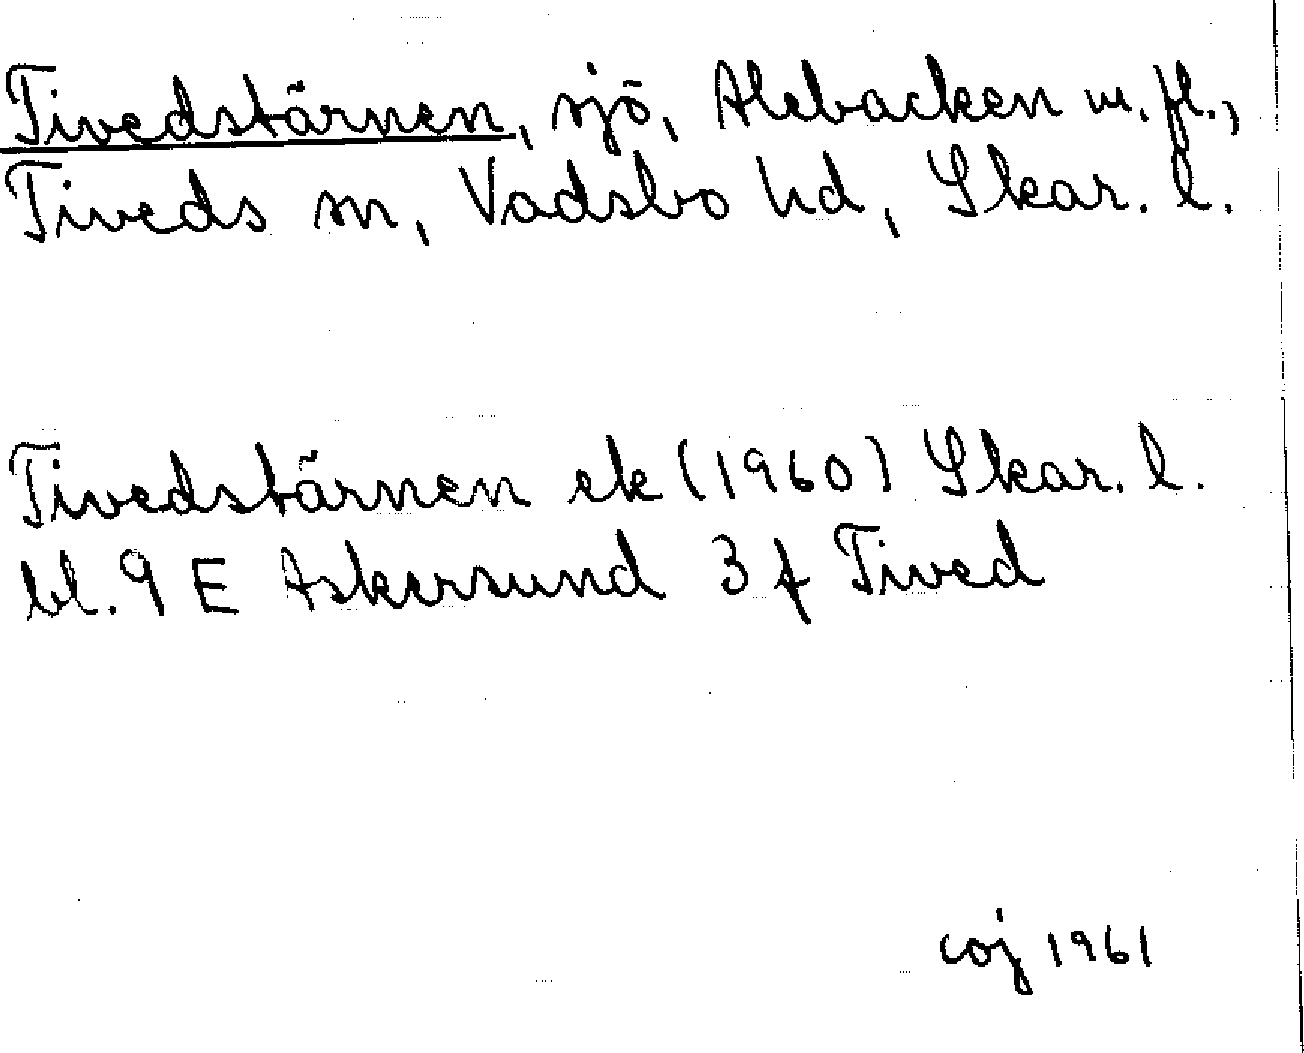 Tivedstärnen, sjö, Alebacken m. fl.,
Tiveds sn, Vadsbo hd, Skar. l.
Tivedstärnen ek (1960) Skar. l.
bl. 9 E Askersund 3 f Tived
coj 1961